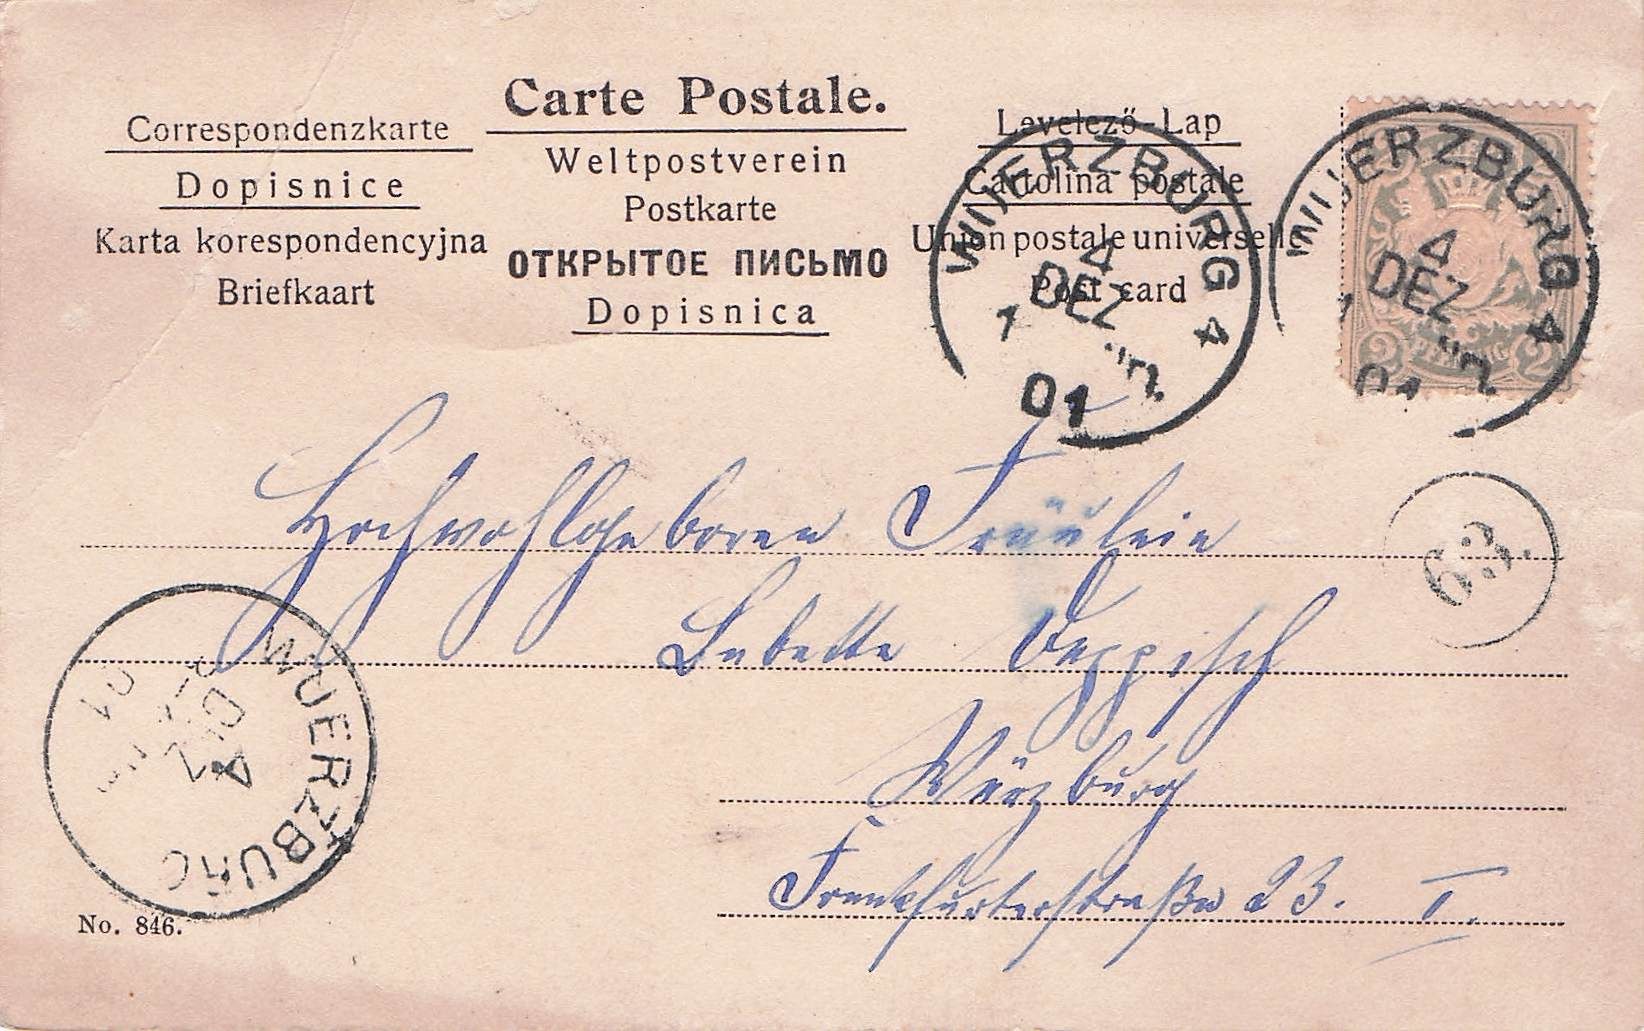 Carte Postale.
Correspondenzkarte
Dopisnice
Karta korespondencyjna
Briefkaart
Weltpostverein
Postkarte
ОТКРЫТОЕ ПИСЬМО
Dopisnica
Levelező-Lap
Cartolina postale
Union postale universelle
Post card
WUERZBURG 4
4
DEZ
01
WUERZBURG 4
4
DEZ
01
2 PFENNIG 2
63.
Hochwohlgeboren Fräulein
Babette Deppisch
Würzburg
Frankfurterstraße 23. I.
WUERZBURG
4
DEZ
01
No. 846.